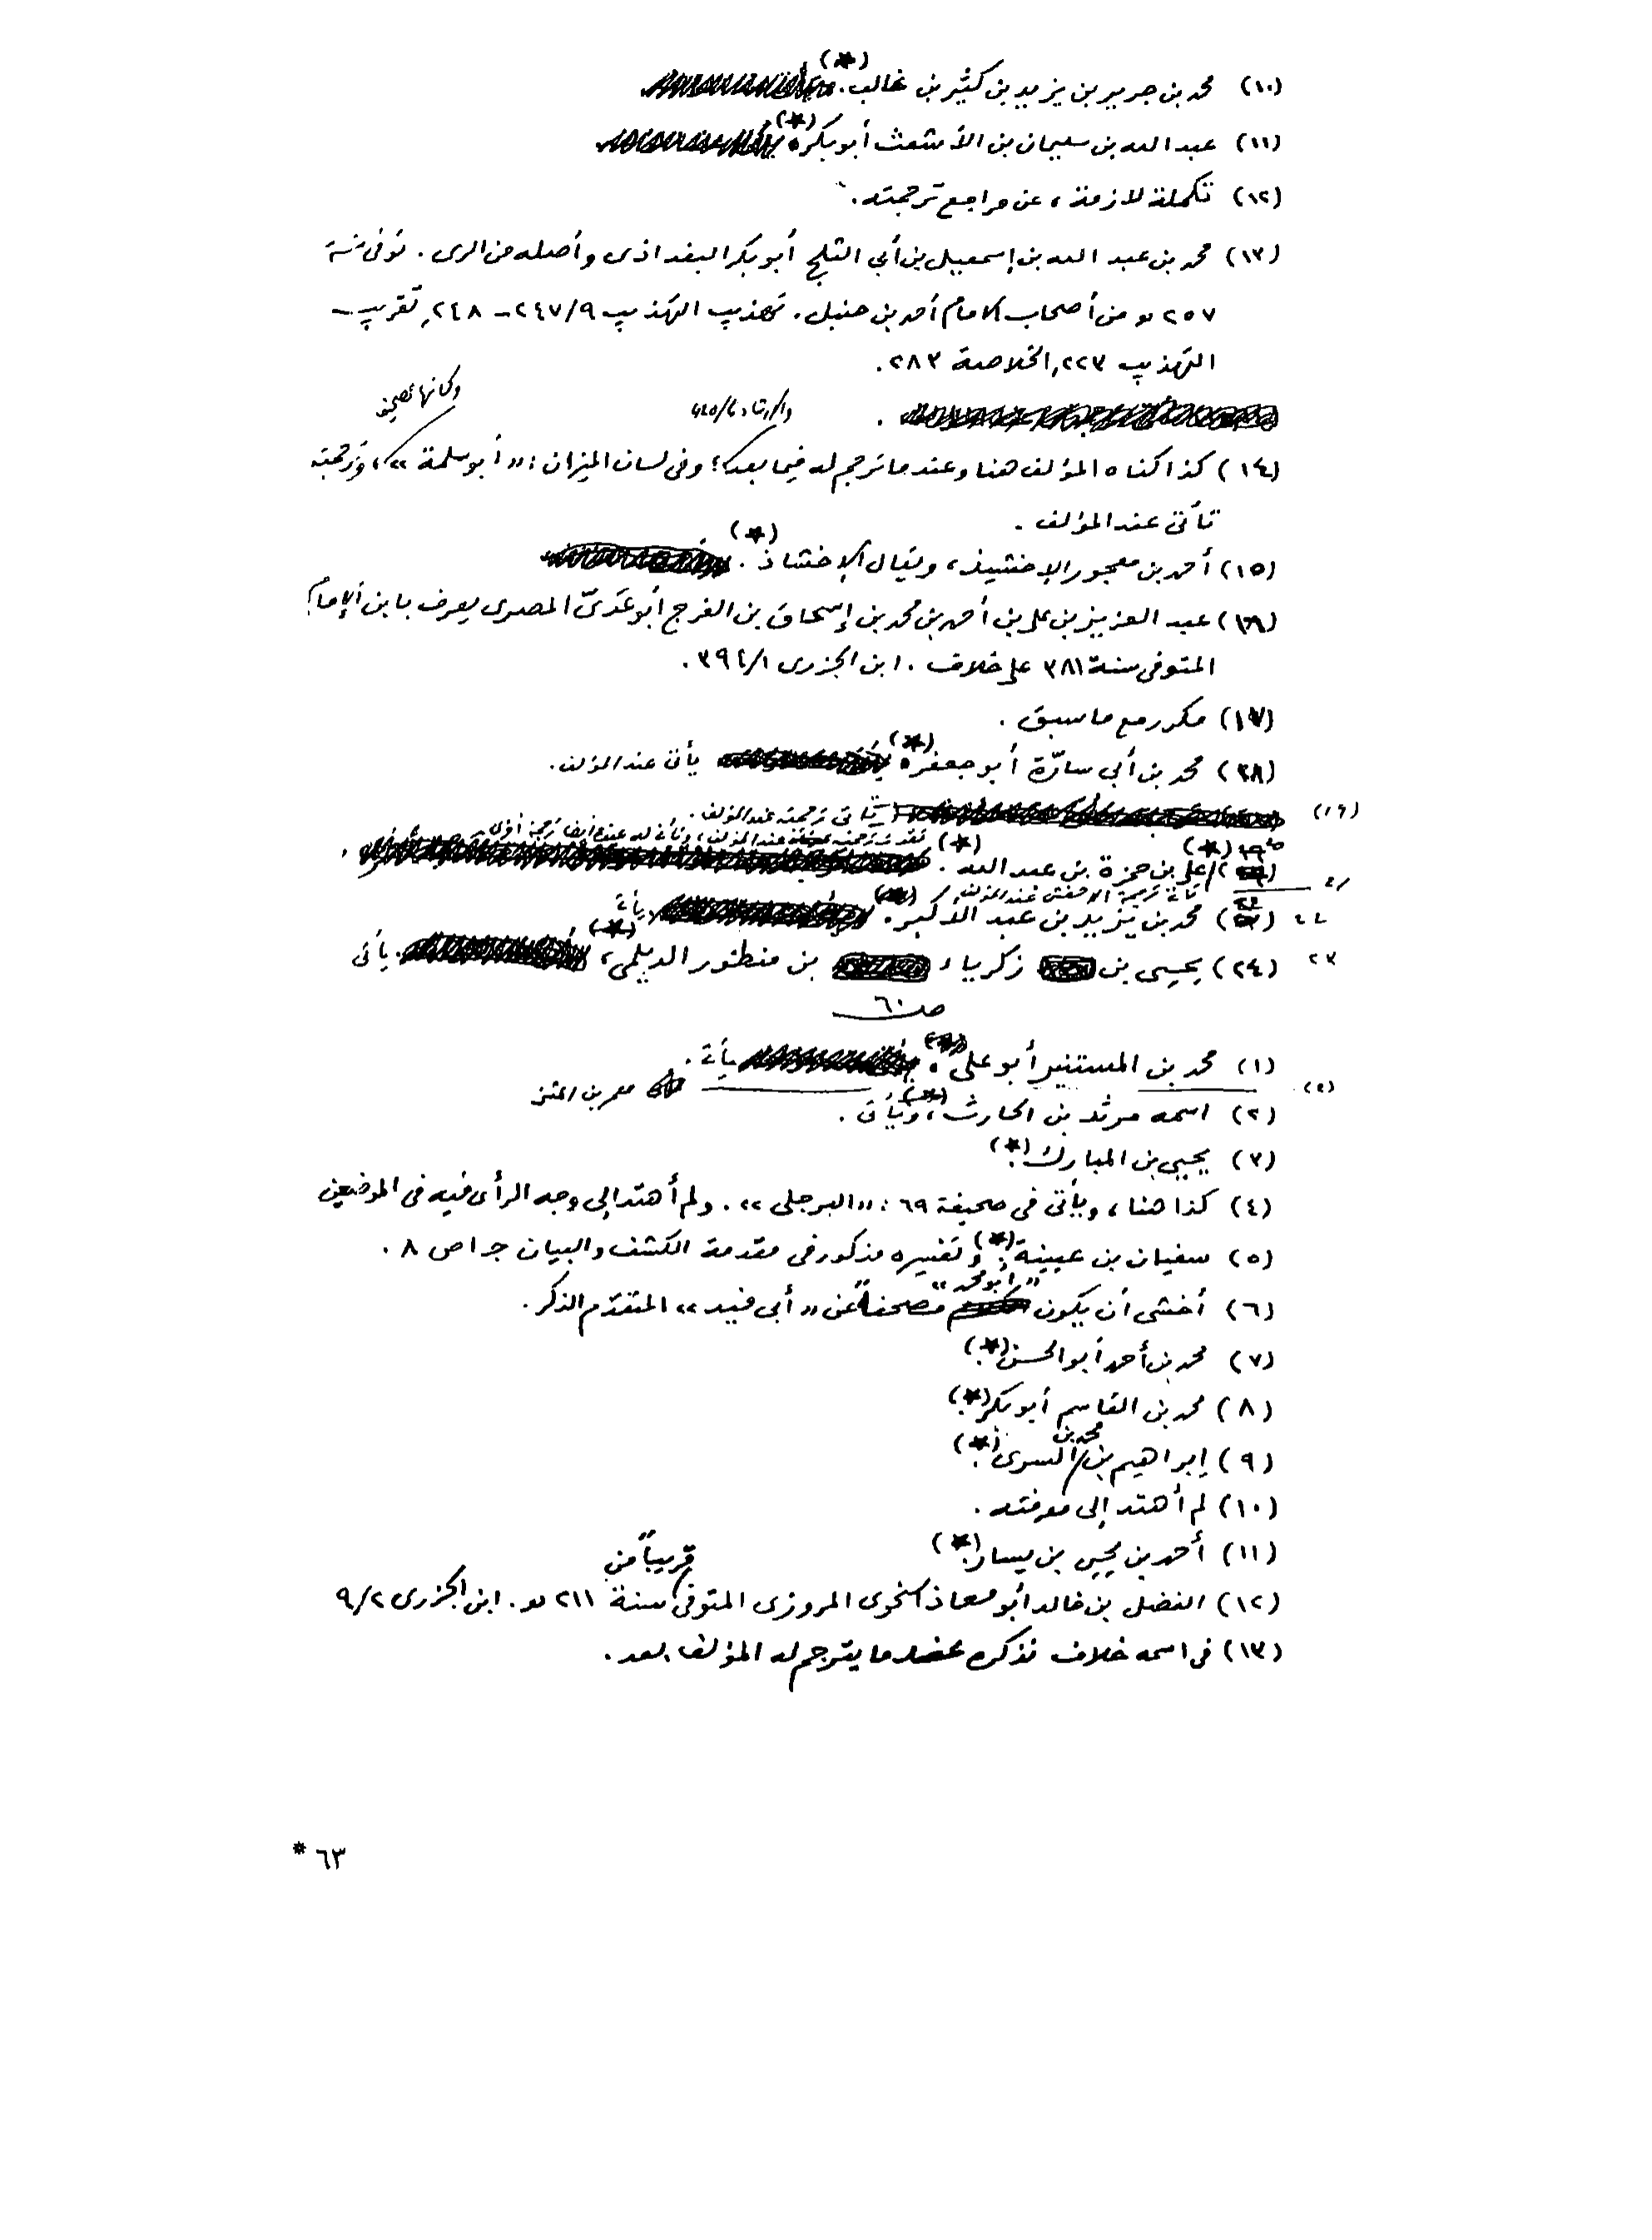 (١٠) محمد بن جرير بن يزيد بن كثير بن غالب. (*)
(١١) عبد الله بن سليمان بن الأشعث أبو بكر. (*)
(١٢) تكملة لازمة، عن مراجع ترجمته.
(١٣) محمد بن عبد الله بن إسمعيل بن أبي الثلج أبو بكر البغدادى وأصله من الرى. توفى سنة
٢٥٧ هـ من أصحاب الامام أحمد بن حنبل. تهذيب التهذيب ٩/٢٤٧ - ٢٤٨, تقريب
التهذيب ٢٢٣, الخلاصة ٢٨٣.
وكانها تصحيف
(١٤) كذا كناه المؤلف هنا وعندما ترجم له فيما بعد؛ وفى لسان الميزان: «أبو سلمة»، وترجمته
تأتى عند المؤلف.
(١٥) أحمد بن معجور الإخشيذ، ويقال الإخشاذ. (*)
(١٦) عبد العزيز بن على بن أحمد بن محمد بن إسحاق بن الفرج أبو عدىّ المصرى يعرف بابن الإمام
المتوفى سنة ٣٨١ على خلاف. ابن الجزرى ١/٣٩٤.
(١٧) مكرر مع ما سبق.
(١٨) محمد بن أبي سارّة أبو جعفر. (*) يأتى عند المؤلف.
(١٩) تأتى ترجمته عند المؤلف.
على بن حمزة بن عبد الله. (*)
تأتى ترجمة الأخفش عند المؤلف
٢٢ محمد بن يزيد بن عبد الأكبر. (*) يأتى
٢٣ (٢٤) يحيى بن زكرياء بن منظور الديلمى، (*) يأتى
صـ ٦٠
(١) محمد بن المستنير أبو على. (*) يأتى.
(٢) معمر بن المثنى
(٢) اسمه مرثد بن الحارث، (*) ويأتى.
(٣) يحيى بن المبارك. (*)
(٤) كذا هنا، ويأتى فى صحيفة ٦٩: «البرجلى». ولم أهتد إلى وجه الرأى فيه فى الموضعين
(٥) سفيان بن عيينة. (*) وتفسيره مذكور فى مقدمة الكشف والبيان جـ١ ص ٨.
(٦) أخشى أن يكون «أبو محمد» مصحفاً عن «أبى فيد» المتقدم الذكر.
(٧) محمد بن أحمد أبو الحسن. (*)
(٨) محمد بن القاسم أبو بكر. (*)
(٩) إبراهيم بن محمد بن السرى. (*)
(١٠) لم أهتد إلى معرفته.
(١١) أحمد بن يحيى بن يسار. (*)
(١٢) الفضل بن خالد أبو معاذ النحوى المروزى المتوفى قريباً من سنة ٢١١ هـ. ابن الجزرى ٢/٩
(١٣) فى اسمه خلاف نذكره عندما يترجم له المؤلف بعد.
٦٣ *